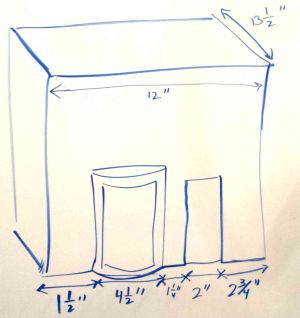 13 1/2"
12"
1 1/2" 4 1/2" 1 1/4" 2" 2 3/4"